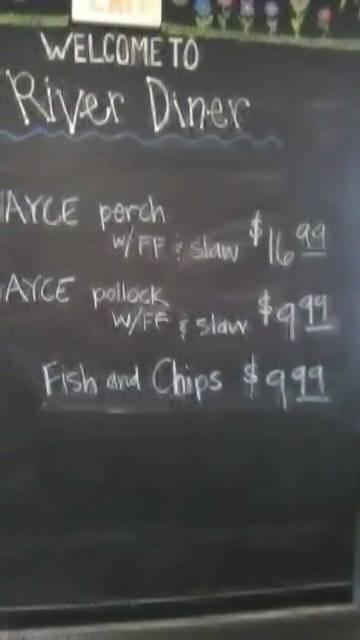 EXIT
WELCOME TO
River Diner
AYCE perch
W/FF & slaw $16 99
AYCE pollock
W/FF & slaw $9 99
Fish and Chips $9 99